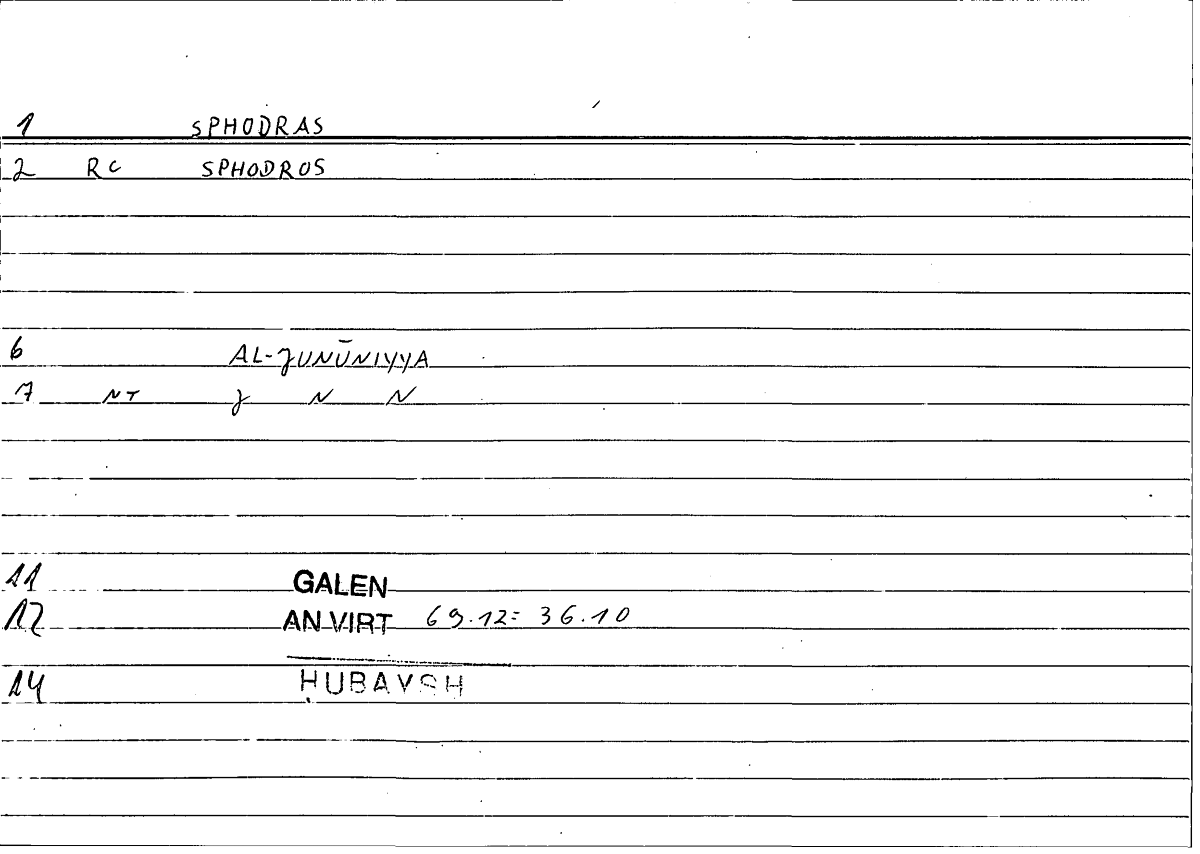 1 SPHODRAS
2 RC SPHODROS
6 AL-JUNŪNIYYA
7 NT J N N
11 GALEN
12 AN VIRT 69.12= 36.10
14 ḤUBAYSH